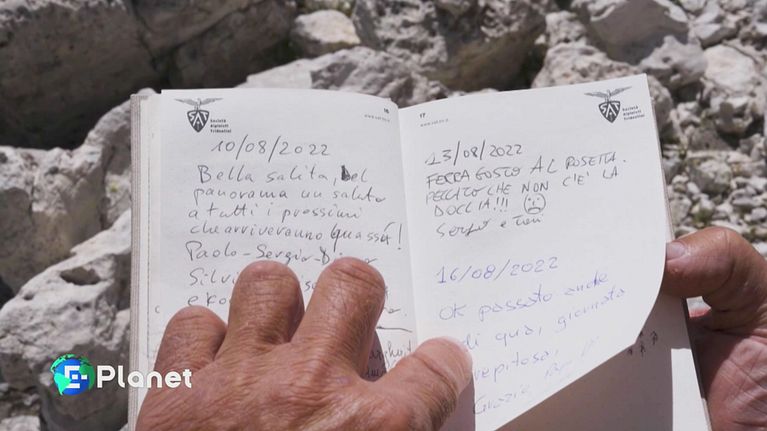 SAT
Società
Alpinisti
Tridentini
16
www.sat.tn.it
10/08/2022
Bella salita, bel
panorama un saluto
a tutti i prossimi
che arriveranno quassú!
Paolo-Sergio-
Silvi
17
www.sat.tn.it
SAT
Società
Alpinisti
Tridentini
13/08/2022
FERRAGOSTO AL ROSETTA.
PECCATO CHE NON C'È LA
DOCCIA!!!
16/08/2022
OK passato anche
di qua, giornata
Grazie
E-Planet